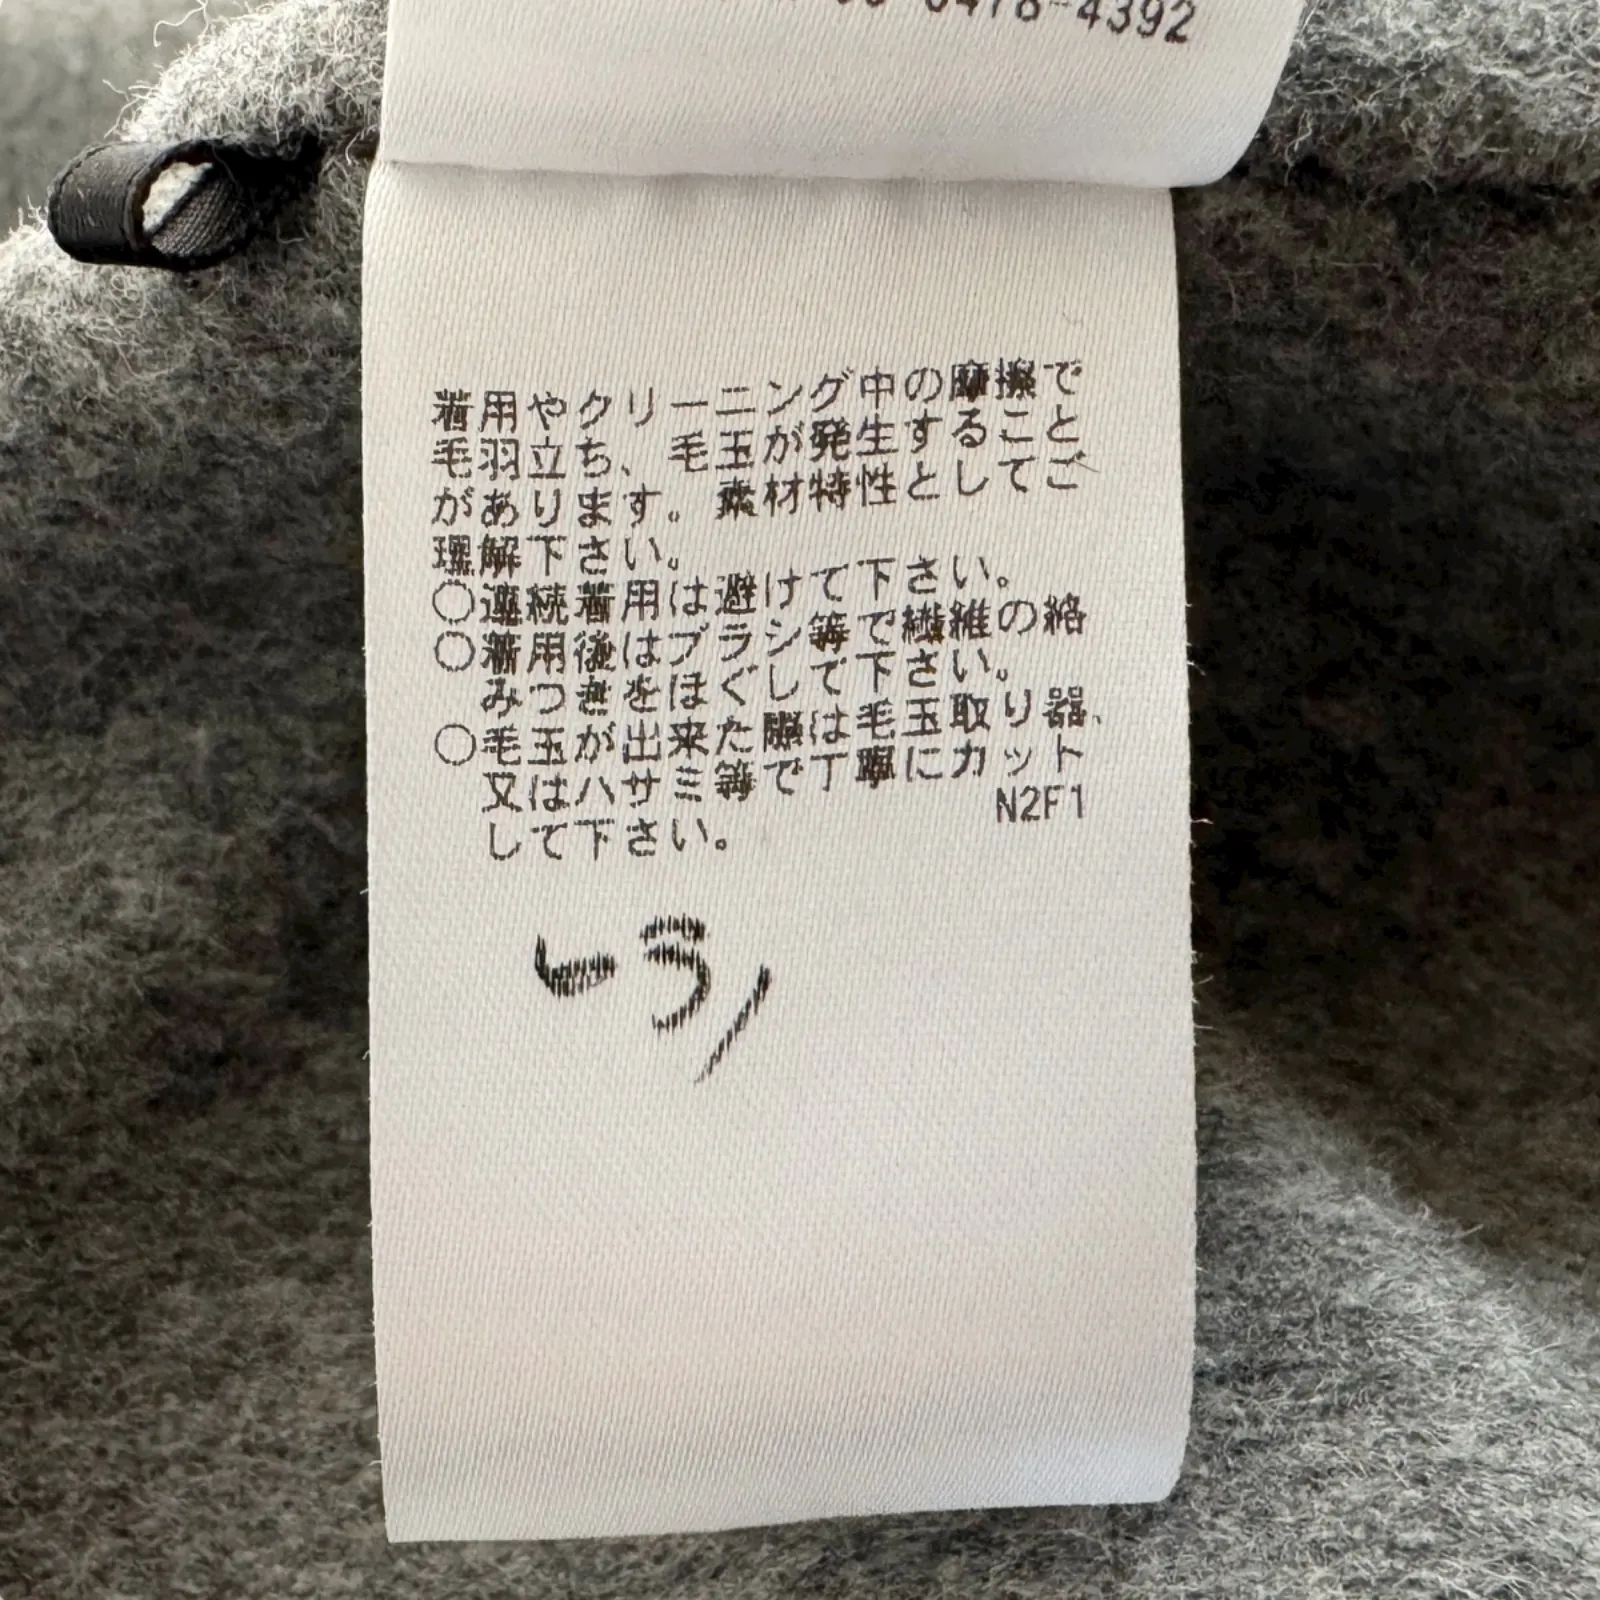 0478-4392
着用やクリーニング中の摩擦で
毛羽立ち、毛玉が発生すること
があります。素材特性としてご
理解下さい。
○連続着用は避けて下さい。
○着用後はブラシ等で繊維の絡
みつきをほぐして下さい。
○毛玉が出来た際は毛玉取り器、
又はハサミ等で丁寧にカット
して下さい。
N2F1